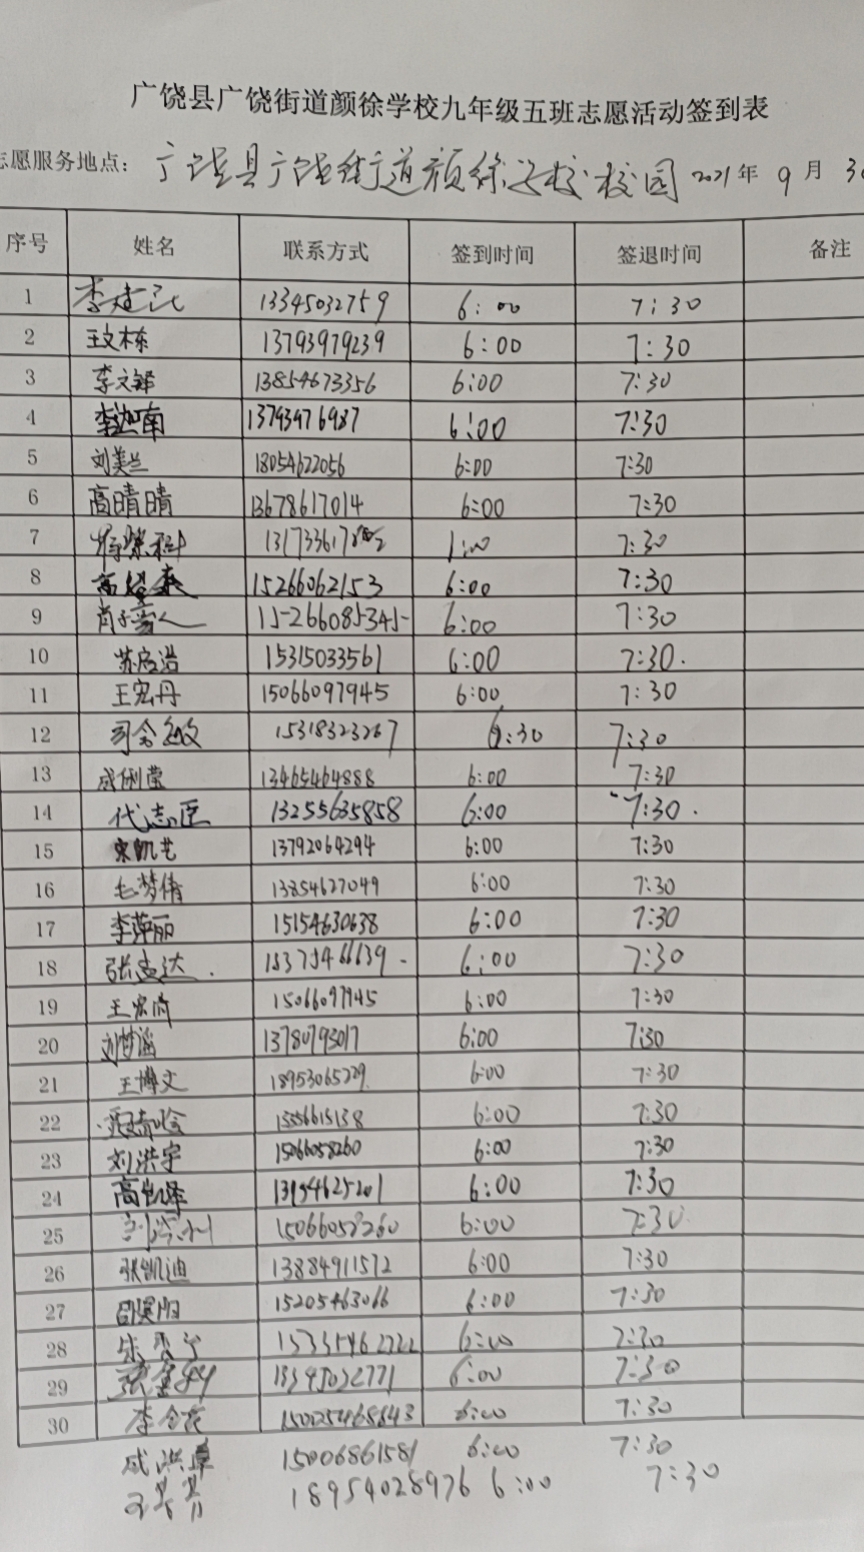 广饶县广饶街道颜徐学校九年级五班志愿活动签到表
志愿服务地点：广饶县广饶街道颜徐学校校园 2021年 9月 30
序号 姓名 联系方式 签到时间 签退时间 备注
1 李建 13345032759 6:00 7:30
2 王文栋 13793979239 6:00 7:30
3 李文铎 13854673356 6:00 7:30
4 李迦南 13793976987 6:00 7:30
5 刘美兰 18054622056 6:00 7:30
6 高晴晴 13678617014 6:00 7:30
7 7:30
8 15266062153 6:00 7:30
9 15266085345 6:00 7:30
10 苏启浩 15315033561 6:00 7:30.
11 王宏丹 15066097945 6:00 7:30
12 15318323267 6:30 7:30
13 13465464888 6:00 7:30
14 代志臣 13255635858 6:00 7:30.
15 宋凯艺 13792064294 6:00 7:30
16 毛梦倩 13854627049 6:00 7:30
17 李萍丽 15154630638 6:00 7:30
18 张志达. 6:00 7:30
19 15066097945 6:00 7:30
20 刘梦涵 13780793017 6:00 7:30
21 王博文 18953065229 6:00 7:30
22 6:00 7:30
23 刘洪宇 15066058260 6:00 7:30
24 高凯泽 6:00 7:30
25 15066058260 6:00 7:30
26 张凯迪 13884911572 6:00 7:30
27 15205463066 6:00 7:30
28 15335462722 6:00 7:30
29 13395032771 6:00 7:30
30 15025468643 6:00 7:30
成洪 15006861581 6:00 7:30
18954028976 6:00 7:30